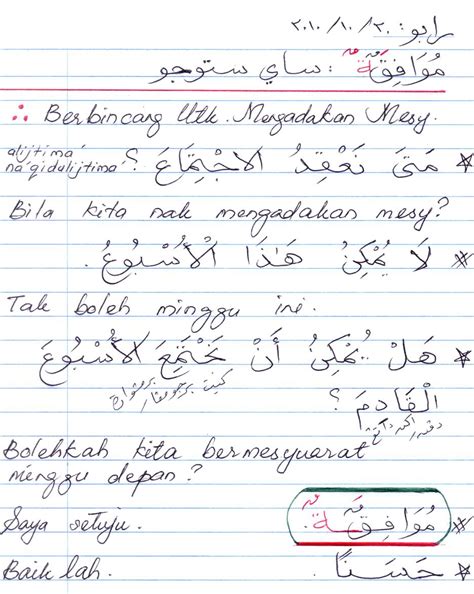 رابو: ٢٠/١٠/٢٠١٠
مُوَافِقٌ/ـةٌ : ساي ستوجو
∴ Berbincang Utk. Mengadakan Mesy.
* مَتَى نَعْقِدُ الاجْتِمَاعَ ؟
alijtima'
na'qidulijtima'
Bila kita nak mengadakan mesy?
* لَا يُمْكِنُ هَذَا الْأُسْبُوعُ.
Tak boleh minggu ini.
* هَلْ يُمْكِنُ أَنْ نَجْتَمِعَ الأُسْبُوعَ
الْقَادِمَ ؟
Bolehkah kita bermesyuarat
minggu depan?
* مُوَافِقٌ/ـةٌ.
Saya setuju.
* حَسَنًا.
Baik lah.